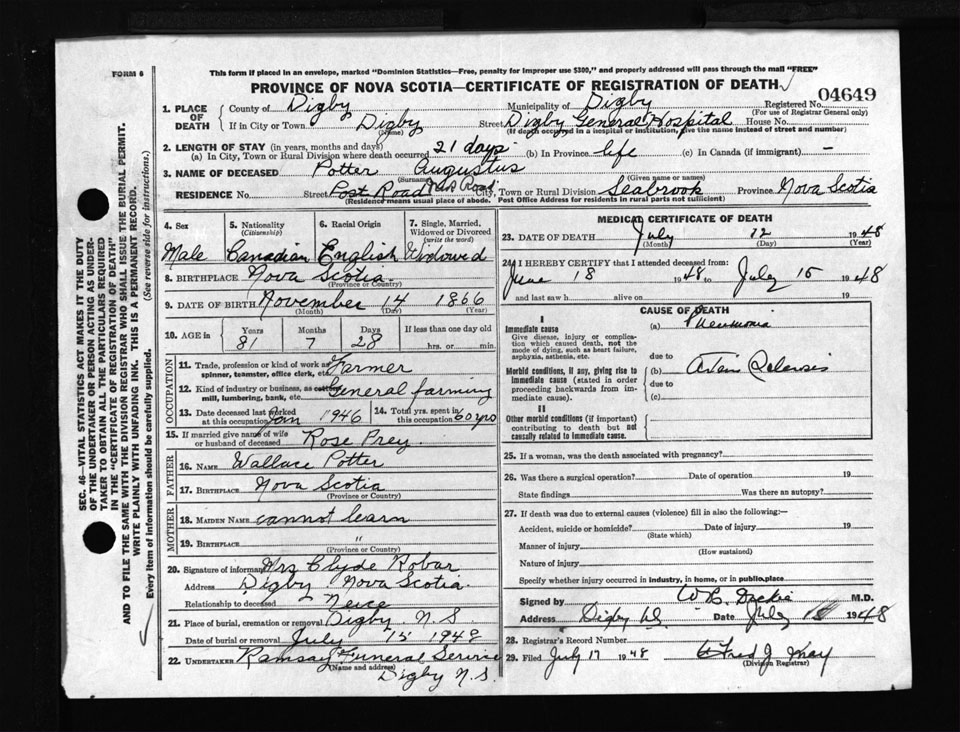 FORM 6
This form if placed in an envelope, marked "Dominion Statistics—Free, penalty for improper use $300," and properly addressed will pass through the mail "FREE"
PROVINCE OF NOVA SCOTIA—CERTIFICATE OF REGISTRATION OF DEATH
04649
SEC. 46—VITAL STATISTICS ACT MAKES IT THE DUTY
OF THE UNDERTAKER OR PERSON ACTING AS UNDER-
TAKER TO OBTAIN ALL THE PARTICULARS REQUIRED
IN THE "CERTIFICATE OF REGISTRATION OF DEATH"
AND TO FILE THE SAME WITH THE DIVISION REGISTRAR WHO SHALL ISSUE THE BURIAL PERMIT.
WRITE PLAINLY WITH UNFADING INK. THIS IS A PERMANENT RECORD.
Every item of information should be carefully supplied. (See reverse side for instructions.)
1. PLACE OF DEATH
County of Digby Municipality of Digby Registered No.
(For use of Registrar General only)
If in City or Town Digby Street Digby General Hospital House No.
(Name) (If death occurred in a hospital or institution, give the name instead of street and number)
2. LENGTH OF STAY (in years, months and days)
(a) In City, Town or Rural Division where death occurred 21 days (b) In Province life (c) In Canada (if immigrant) —
3. NAME OF DECEASED Potter Augustus
(Surname) (Given name or names)
RESIDENCE No. Street Post Road City, Town or Rural Division Seabrook Province Nova Scotia
(Residence means usual place of abode. Post Office Address for residents in rural parts not sufficient)
4. Sex
Male
5. Nationality
(Citizenship)
Canadian
6. Racial Origin
English
7. Single, Married,
Widowed or Divorced
(write the word)
Widowed
8. BIRTHPLACE Nova Scotia
(Province or Country)
9. DATE OF BIRTH November 14 1866
(Month) (Day) (Year)
10. AGE in
Years 81
Months 7
Days 28
If less than one day old
hrs. or min.
OCCUPATION
11. Trade, profession or kind of work as
spinner, teamster, office clerk, etc. Farmer
12. Kind of industry or business, as cotton
mill, lumbering, bank, etc. General farming
13. Date deceased last worked
at this occupation Jan 1946
14. Total yrs. spent in
this occupation 60 yrs
15. If married give name of wife
or husband of deceased Rose Prey
FATHER
16. NAME Wallace Potter
17. BIRTHPLACE Nova Scotia
(Province or Country)
MOTHER
18. MAIDEN NAME cannot learn
19. BIRTHPLACE "
(Province or Country)
20. Signature of informant Mrs Clyde Robar
Address Digby Nova Scotia
Relationship to deceased Neice
21. Place of burial, cremation or removal Digby. N.S
Date of burial or removal July 15 1948
22. UNDERTAKER Ramsay Funeral Service
(Name and address)
Digby N.S.
MEDICAL CERTIFICATE OF DEATH
23. DATE OF DEATH July 12 1948
(Month) (Day) (Year)
24. I HEREBY CERTIFY that I attended deceased from:
June 18 1948 to July 15 1948
and last saw h alive on 19
CAUSE OF DEATH
I
Immediate cause
Give disease, injury or complica-
tion which caused death, not the
mode of dying, such as heart failure,
asphyxia, asthenia, etc.
(a) Pneumonia
due to
Morbid conditions, if any, giving rise to
immediate cause (stated in order
proceeding backwards from im-
mediate cause).
(b)
due to
(c)
II
Other morbid conditions (if important)
contributing to death but not
causally related to immediate cause.
25. If a woman, was the death associated with pregnancy?
26. Was there a surgical operation? Date of operation 19
State findings Was there an autopsy?
27. If death was due to external causes (violence) fill in also the following:—
Accident, suicide or homicide? Date of injury 19
(State which)
Manner of injury
(How sustained)
Nature of injury
Specify whether injury occurred in industry, in home, or in public place
Signed by M.D.
Address Digby NS. Date July 1948
28. Registrar's Record Number
29. Filed July 17 1948
(Division Registrar)